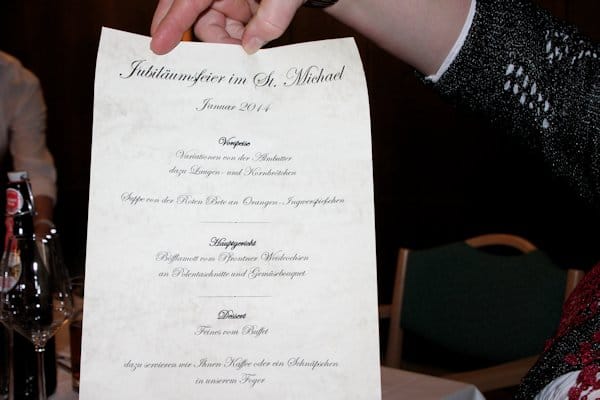 Jubiläumsfeier im St. Michael
Januar 2014
Vorspeise
Variationen von der Almbutter
dazu Laugen- und Kornbrötchen
Suppe von der Roten Bete an Orangen-Ingwerspießchen
Hauptgericht
Böfflamott vom Pfrontner Weideochsen
an Polentaschnitte und Gemüsebouquet
Dessert
Feines vom Buffet
dazu servieren wir Ihnen Kaffee oder ein Schnäpschen
in unserem Foyer